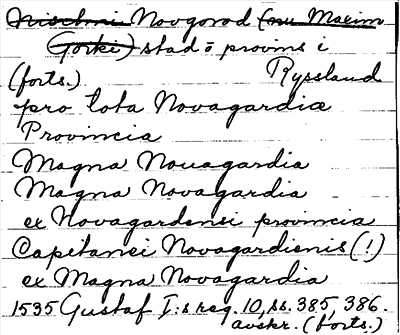 Nischni Novgorod (nu Maxim
Gorki) stad o provins i
(forts.) Ryssland
pro tota Novagardiæ
Provincia
Magna Nouagardia
Magna Novagardia
ex Novagardensi provincia
Capitanei Novagardienis (!)
ex Magna Novagardia
1535 Gustaf I:s reg. 10, ss. 385, 386.
avskr. (forts.)